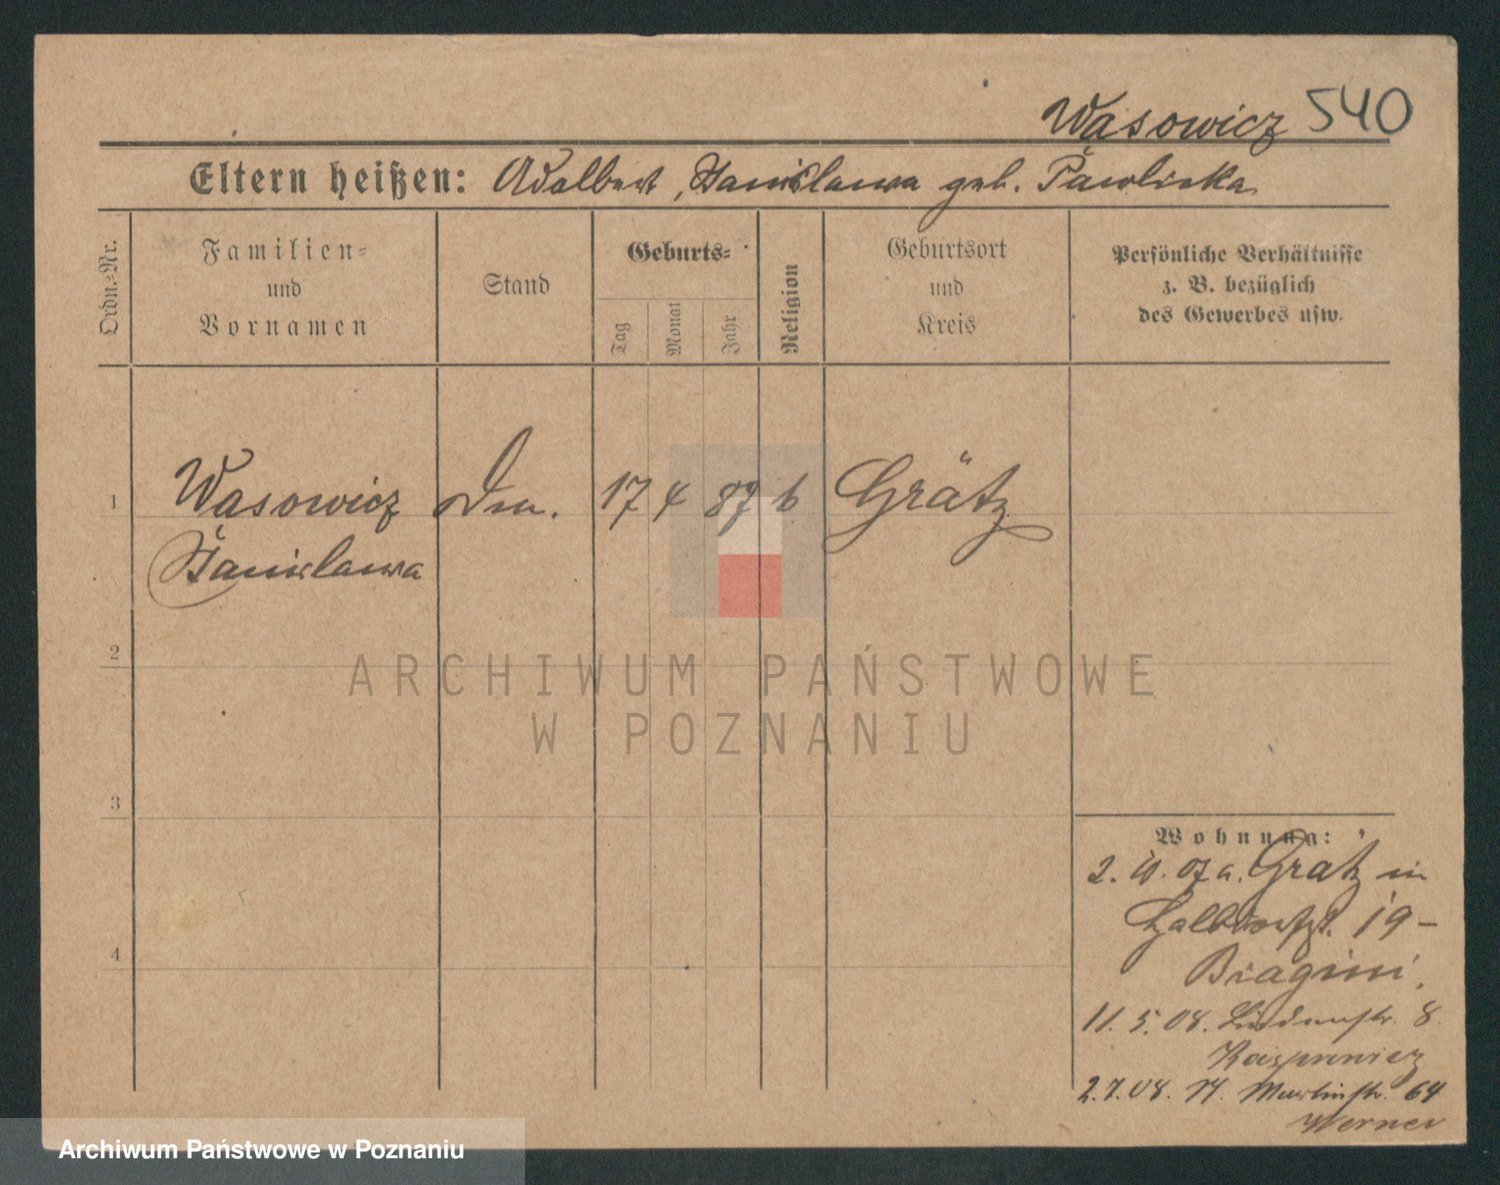 Wasowicz 540
Eltern heißen: Adalbert, Stanislawa geb. Pawlicka
Ordn.-Nr.
Familien-
und
Vornamen
Stand
Geburts-
Tag
Monat
Jahr
Religion
Geburtsort
und
Kreis
Persönliche Verhältnisse
z. B. bezüglich
des Gewerbes usw.
1 Wasowicz 17 4 87 Grätz
Stanislawa
2
3
4
ARCHIWUM PAŃSTWOWE
W POZNANIU
Wohnung:
2. 07 a. Grätz in
19 –
Biagini.
11. 5. 08. Lindenstr. 8
Kasprowicz
2.7.08. St. Martinstr. 64
Werner
Archiwum Państwowe w Poznaniu